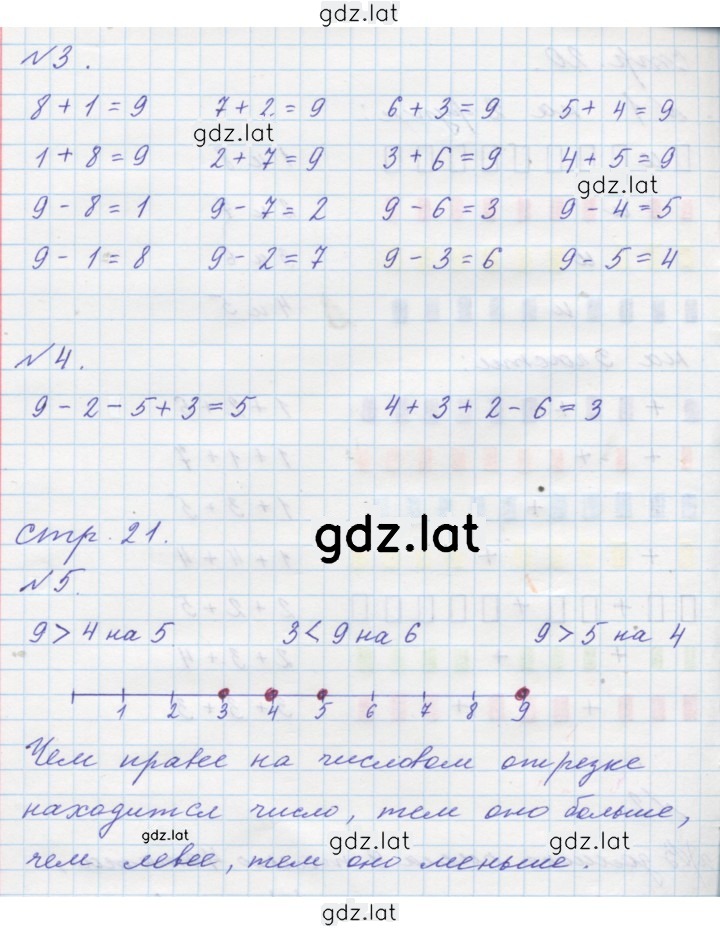 gdz.lat
№3.
8 + 1 = 9 7 + 2 = 9 6 + 3 = 9 5 + 4 = 9
gdz.lat
1 + 8 = 9 2 + 7 = 9 3 + 6 = 9 4 + 5 = 9
gdz.lat
9 - 8 = 1 9 - 7 = 2 9 - 6 = 3 9 - 4 = 5
9 - 1 = 8 9 - 2 = 7 9 - 3 = 6 9 - 5 = 4
№4.
9 - 2 - 5 + 3 = 5 4 + 3 + 2 - 6 = 3
стр. 21.
gdz.lat
№5.
9 > 4 на 5 3 < 9 на 6 9 > 5 на 4
1 2 3 4 5 6 7 8 9
Чем правее на числовом отрезке
находится число, тем оно больше,
gdz.lat gdz.lat gdz.lat
чем левее, тем оно меньше.
gdz.lat